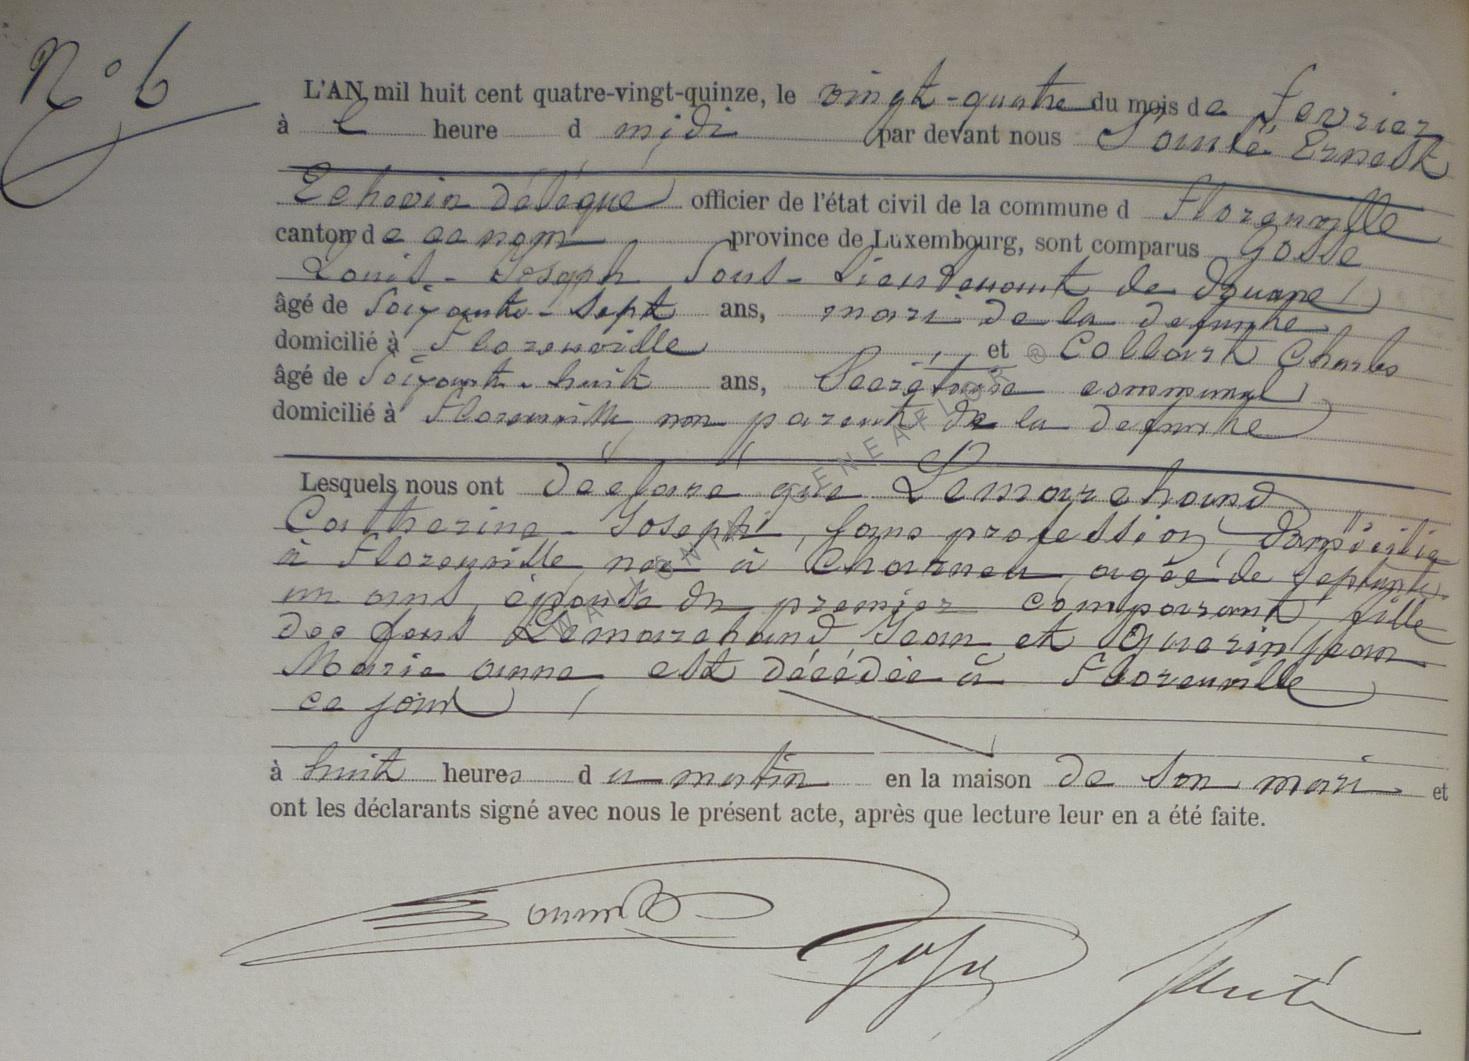 N° 6
L'AN mil huit cent quatre-vingt-quinze, le vingt-quatre du mois de fevrier
à heure d midi par devant nous Santé Ernest
Echevin délégué officier de l'état civil de la commune d Florenville
canton de ce nom province de Luxembourg, sont comparus Gosse
Louis-Joseph Sous-Lieutenant de douane
âgé de Soixante-sept ans, mari de la defunte
domicilié à Florenville et Collart Charles
âgé de Soixante-huit ans, Secrétaire communal
domicilié à Florenville non parent de la defunte
Lesquels nous ont déclaré que Lemarchand
Catherine-Joseph, sans profession, domiciliée
à Florenville, née à Charneu, agée de septante
un ans, épouse du premier comparant, fille
des feus Lemarchand Jean et Guerin Jean
Marie anne est décédée à Florenville
ce jour
à huit heures du matin en la maison de son mari et
ont les déclarants signé avec nous le présent acte, après que lecture leur en a été faite.
Gosse Santé